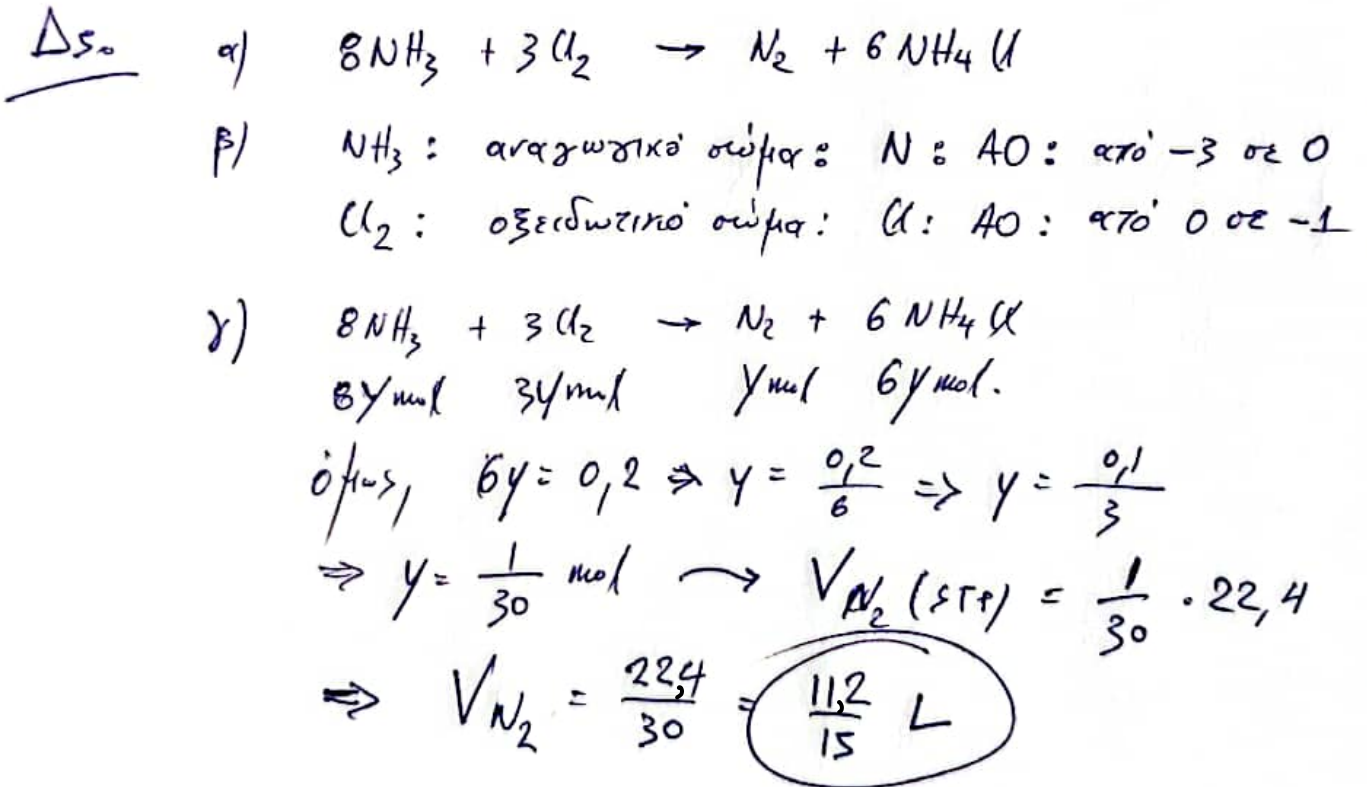 Δ5. α) 8NH₃ + 3Cl₂ → N₂ + 6NH₄Cl
β) NH₃ : αναγωγικό σώμα : N : AO : από -3 σε 0
Cl₂ : οξειδωτικό σώμα : Cl : AO : από 0 σε -1
γ) 8NH₃ + 3Cl₂ → N₂ + 6NH₄Cl
8y mol 3y mol y mol 6y mol.
όμως, 6y = 0,2 ⇒ y = 0,2/6 ⇒ y = 0,1/3
⇒ y = 1/30 mol → V N₂ (STP) = 1/30 · 22,4
⇒ V N₂ = 22,4/30 = 11,2/15 L